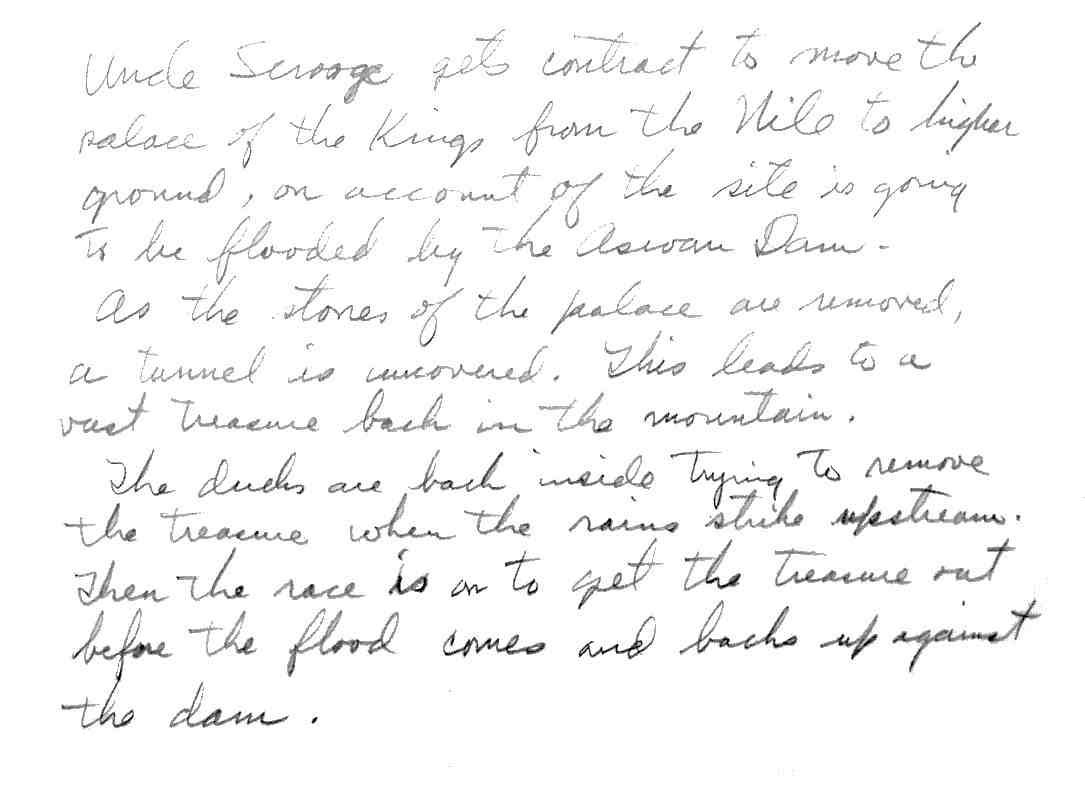 Uncle Scrooge gets contract to move the
palace of the Kings from the Nile to higher
ground, on account of the site is going
to be flooded by the Aswan Dam -
As the stones of the palace are removed,
a tunnel is uncovered. This leads to a
vast treasure back in the mountain.
The ducks are back inside trying to remove
the treasure when the rains strike upstream.
Then the race is on to get the treasure out
before the flood comes and backs up against
the dam.